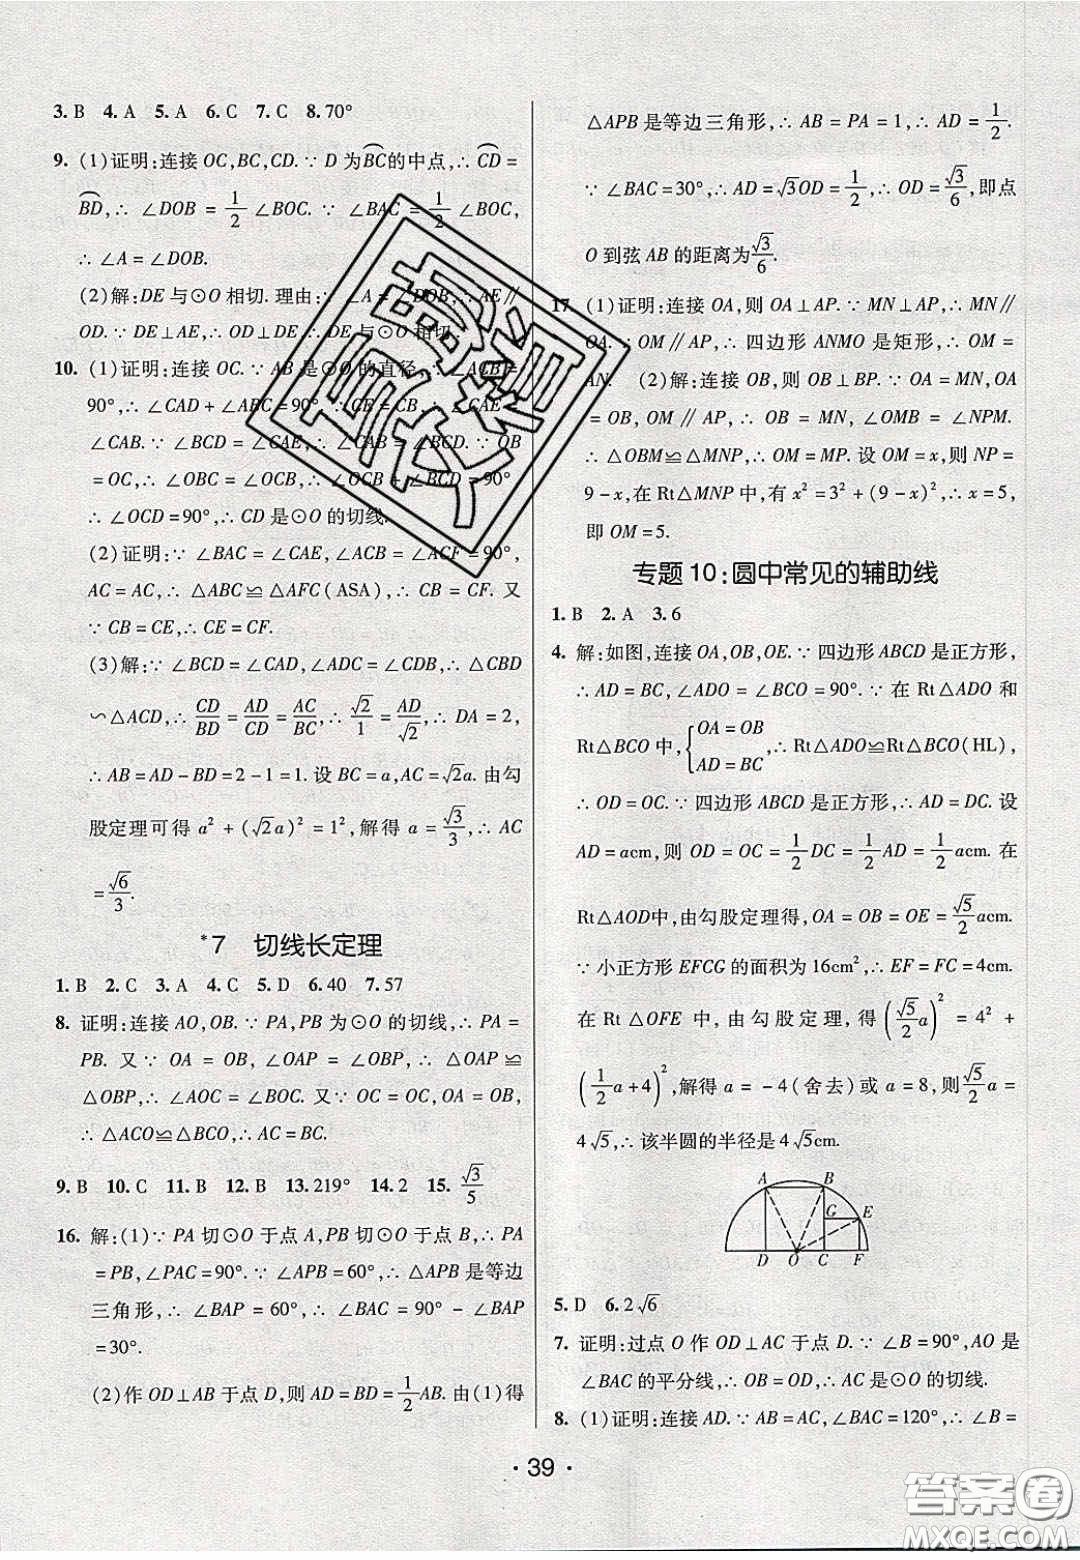 3. B 4. A 5. A 6. C 7. C 8. 70°
9. (1)证明:连接 OC,BC,CD. ∵ D 为BC⌒的中点,∴ CD⌒ =
BD⌒,∴ ∠DOB = 1/2 ∠BOC. ∵ ∠BAC = 1/2 ∠BOC,
∴ ∠A = ∠DOB.
(2)解:DE 与⊙O 相切. 理由:∵ ∠A = ∠DOB,∴ AE∥
OD. ∵ DE⊥AE,∴ OD⊥DE,∴ DE 与⊙O 相切.
10. (1)证明:连接 OC. ∵ AB 是⊙O 的直径,∴ ∠ACB =
90°,∴ ∠CAD + ∠ABC = 90°. ∵ CE = CB,∴ ∠CAE =
∠CAB. ∵ ∠BCD = ∠CAE,∴ ∠CAB = ∠BCD. ∵ OB
= OC,∴ ∠OBC = ∠OCB,∴ ∠OCB + ∠BCD = 90°,
∴ ∠OCD = 90°,∴ CD 是⊙O 的切线.
(2)证明:∵ ∠BAC = ∠CAE,∠ACB = ∠ACF = 90°,
AC = AC,∴ △ABC≌△AFC(ASA),∴ CB = CF. 又
∵ CB = CE,∴ CE = CF.
(3)解:∵ ∠BCD = ∠CAD,∠ADC = ∠CDB,∴ △CBD
∽△ACD,∴ CD/BD = AD/CD = AC/BC,∴ √2/1 = AD/√2,∴ DA = 2,
∴ AB = AD - BD = 2 - 1 = 1. 设 BC = a,AC = √2a. 由勾
股定理可得 a² + (√2a)² = 1²,解得 a = √3/3,∴ AC
= √6/3.
*7 切线长定理
1. B 2. C 3. A 4. C 5. D 6. 40 7. 57
8. 证明:连接 AO,OB. ∵ PA,PB 为⊙O 的切线,∴ PA =
PB. 又 ∵ OA = OB,∠OAP = ∠OBP,∴ △OAP ≌
△OBP,∴ ∠AOC = ∠BOC. 又∵ OC = OC,OA = OB,
∴ △ACO≌△BCO,∴ AC = BC.
9. B 10. C 11. B 12. B 13. 219° 14. 2 15. √3/5
16. 解:(1)∵ PA 切⊙O 于点 A,PB 切⊙O 于点 B,∴ PA
= PB,∠PAC = 90°. ∵ ∠APB = 60°,∴ △APB 是等边
三角形,∴ ∠BAP = 60°,∴ ∠BAC = 90° - ∠BAP
= 30°.
(2)作 OD⊥AB 于点 D,则 AD = BD = 1/2 AB. 由(1)得
△APB 是等边三角形,∴ AB = PA = 1,∴ AD = 1/2.
∵ ∠BAC = 30°,∴ AD = √3OD = 1/2,∴ OD = √3/6,即点
O 到弦 AB 的距离为√3/6.
17 (1)证明:连接 OA,则 OA⊥AP. ∵ MN⊥AP,∴ MN∥
OA. ∵ OM∥AP,∴ 四边形 ANMO 是矩形,∴ OM =
AN. (2)解:连接 OB,则 OB⊥BP. ∵ OA = MN,OA
= OB,OM∥AP,∴ OB = MN,∠OMB = ∠NPM.
∴ △OBM≌△MNP,∴ OM = MP. 设 OM = x,则 NP =
9 - x,在 Rt△MNP 中,有 x² = 3² + (9 - x)²,∴ x = 5,
即 OM = 5.
专题 10:圆中常见的辅助线
1. B 2. A 3. 6
4. 解:如图,连接 OA,OB,OE. ∵ 四边形 ABCD 是正方形,
∴ AD = BC,∠ADO = ∠BCO = 90°. ∵ 在 Rt△ADO 和
Rt△BCO 中,{OA = OB AD = BC,∴ Rt△ADO≌Rt△BCO(HL),
∴ OD = OC. ∵ 四边形 ABCD 是正方形,∴ AD = DC. 设
AD = acm,则 OD = OC = 1/2 DC = 1/2 AD = 1/2 acm. 在
Rt△AOD中,由勾股定理得,OA = OB = OE = √5/2 acm.
∵ 小正方形 EFCG 的面积为 16cm²,∴ EF = FC = 4cm.
在 Rt△OFE 中,由勾股定理,得 (√5/2 a)² = 4² +
(1/2 a + 4)²,解得 a = -4(舍去)或 a = 8,则√5/2 a =
4√5,∴ 该半圆的半径是 4√5cm.
A B
G E
D O C F
5. D 6. 2√6
7. 证明:过点 O 作 OD⊥AC 于点 D. ∵ ∠B = 90°,AO 是
∠BAC 的平分线,∴ OB = OD,∴ AC 是⊙O 的切线.
8. (1)证明:连接 AD. ∵ AB = AC,∠BAC = 120°,∴ ∠B =
· 39 ·
答案卷
MXQE.COM